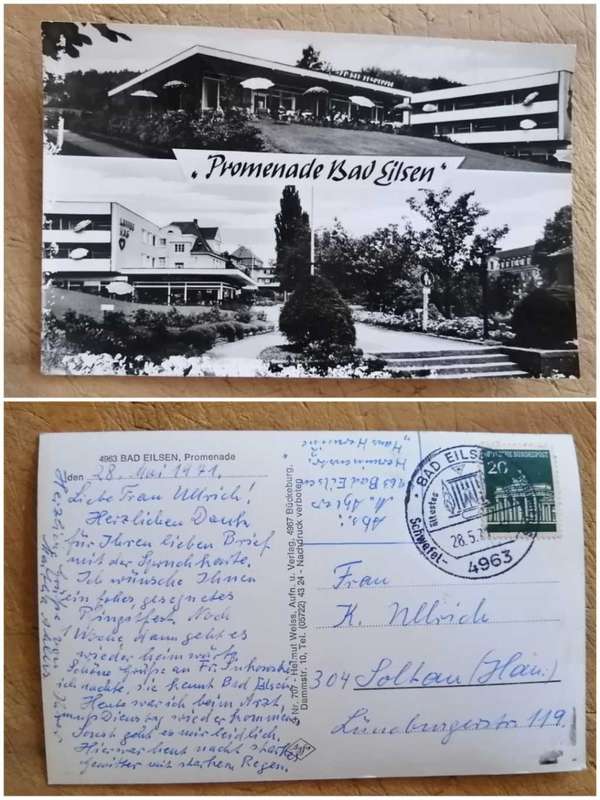 "Promenade Bad Eilsen"
4963 BAD EILSEN, Promenade
den 28. Mai 1971.
Liebe Frau Ullrich!
Herzlichen Dank
für Ihren lieben Brief
mit der Spruchkarte.
Ich wünsche Ihnen
ein frohes, gesegnetes
Pfingstfest. Noch
1 Woche, dann geht es
wieder heimwärts.
Schöne Grüße an Fr.
sie kennt Bad Eilsen
Heute war ich beim Arzt,
muß Dienstag wieder kommen
Sonst geht es mir leidlich.
Hier war heut nacht starkes
Gewitter mit starkem Regen.
Herzliche Grüße von Ihrer
Nr. 707 - Helmut Weiss, Aufn. u. Verlag, 4967 Bückeburg,
Dammstr. 10, Tel. (05722) 43 24 - Nachdruck verboten
Abs.:
4963 Bad Eilsen
Herminenstr. 12
"Haus Hermine"
BAD EILSEN
ältestes
Schwefel-
28.5.
4963
DEUTSCHE BUNDESPOST
20
Frau
K. Ullrich
304 Soltau (Han.)
Lüneburgerstr. 119.